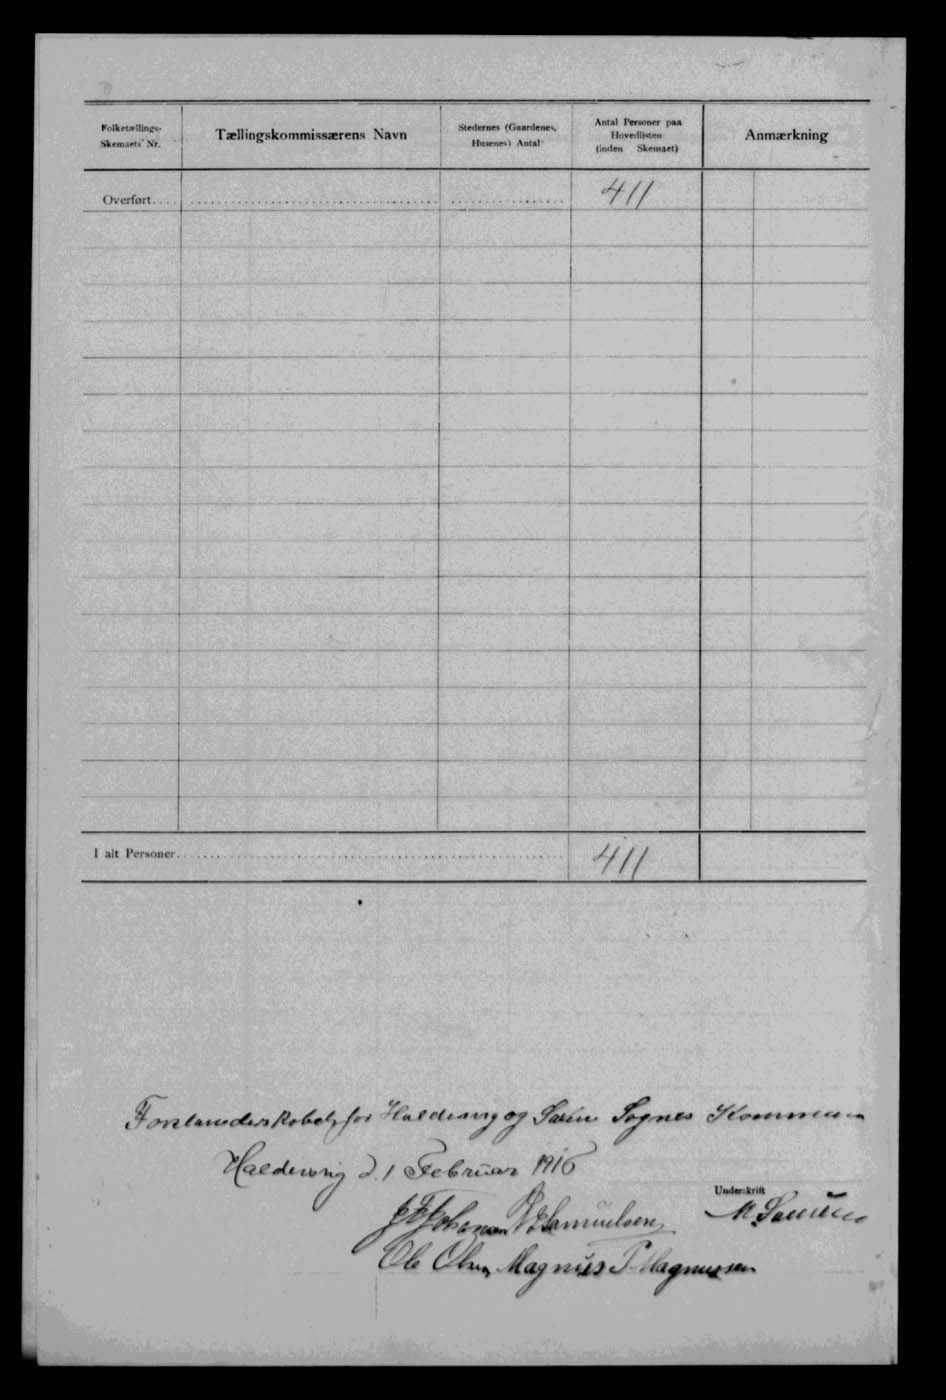 Folketællings-
Skemaets Nr.
Tællingskommissærens Navn
Stedernes (Gaardenes,
Husenes) Antal
Antal Personer paa
Hovedlisten
(inden Skemaet)
Anmærkning
Overført 411
I alt Personer 411
Forstanderskabet for Haldersvig og Saxen Sognes Kommune
Haldersvig d. 1 Februar 1916
Underskrift
Johansen Samuelsen M.
Ole Olsen Magnus P Magnussen